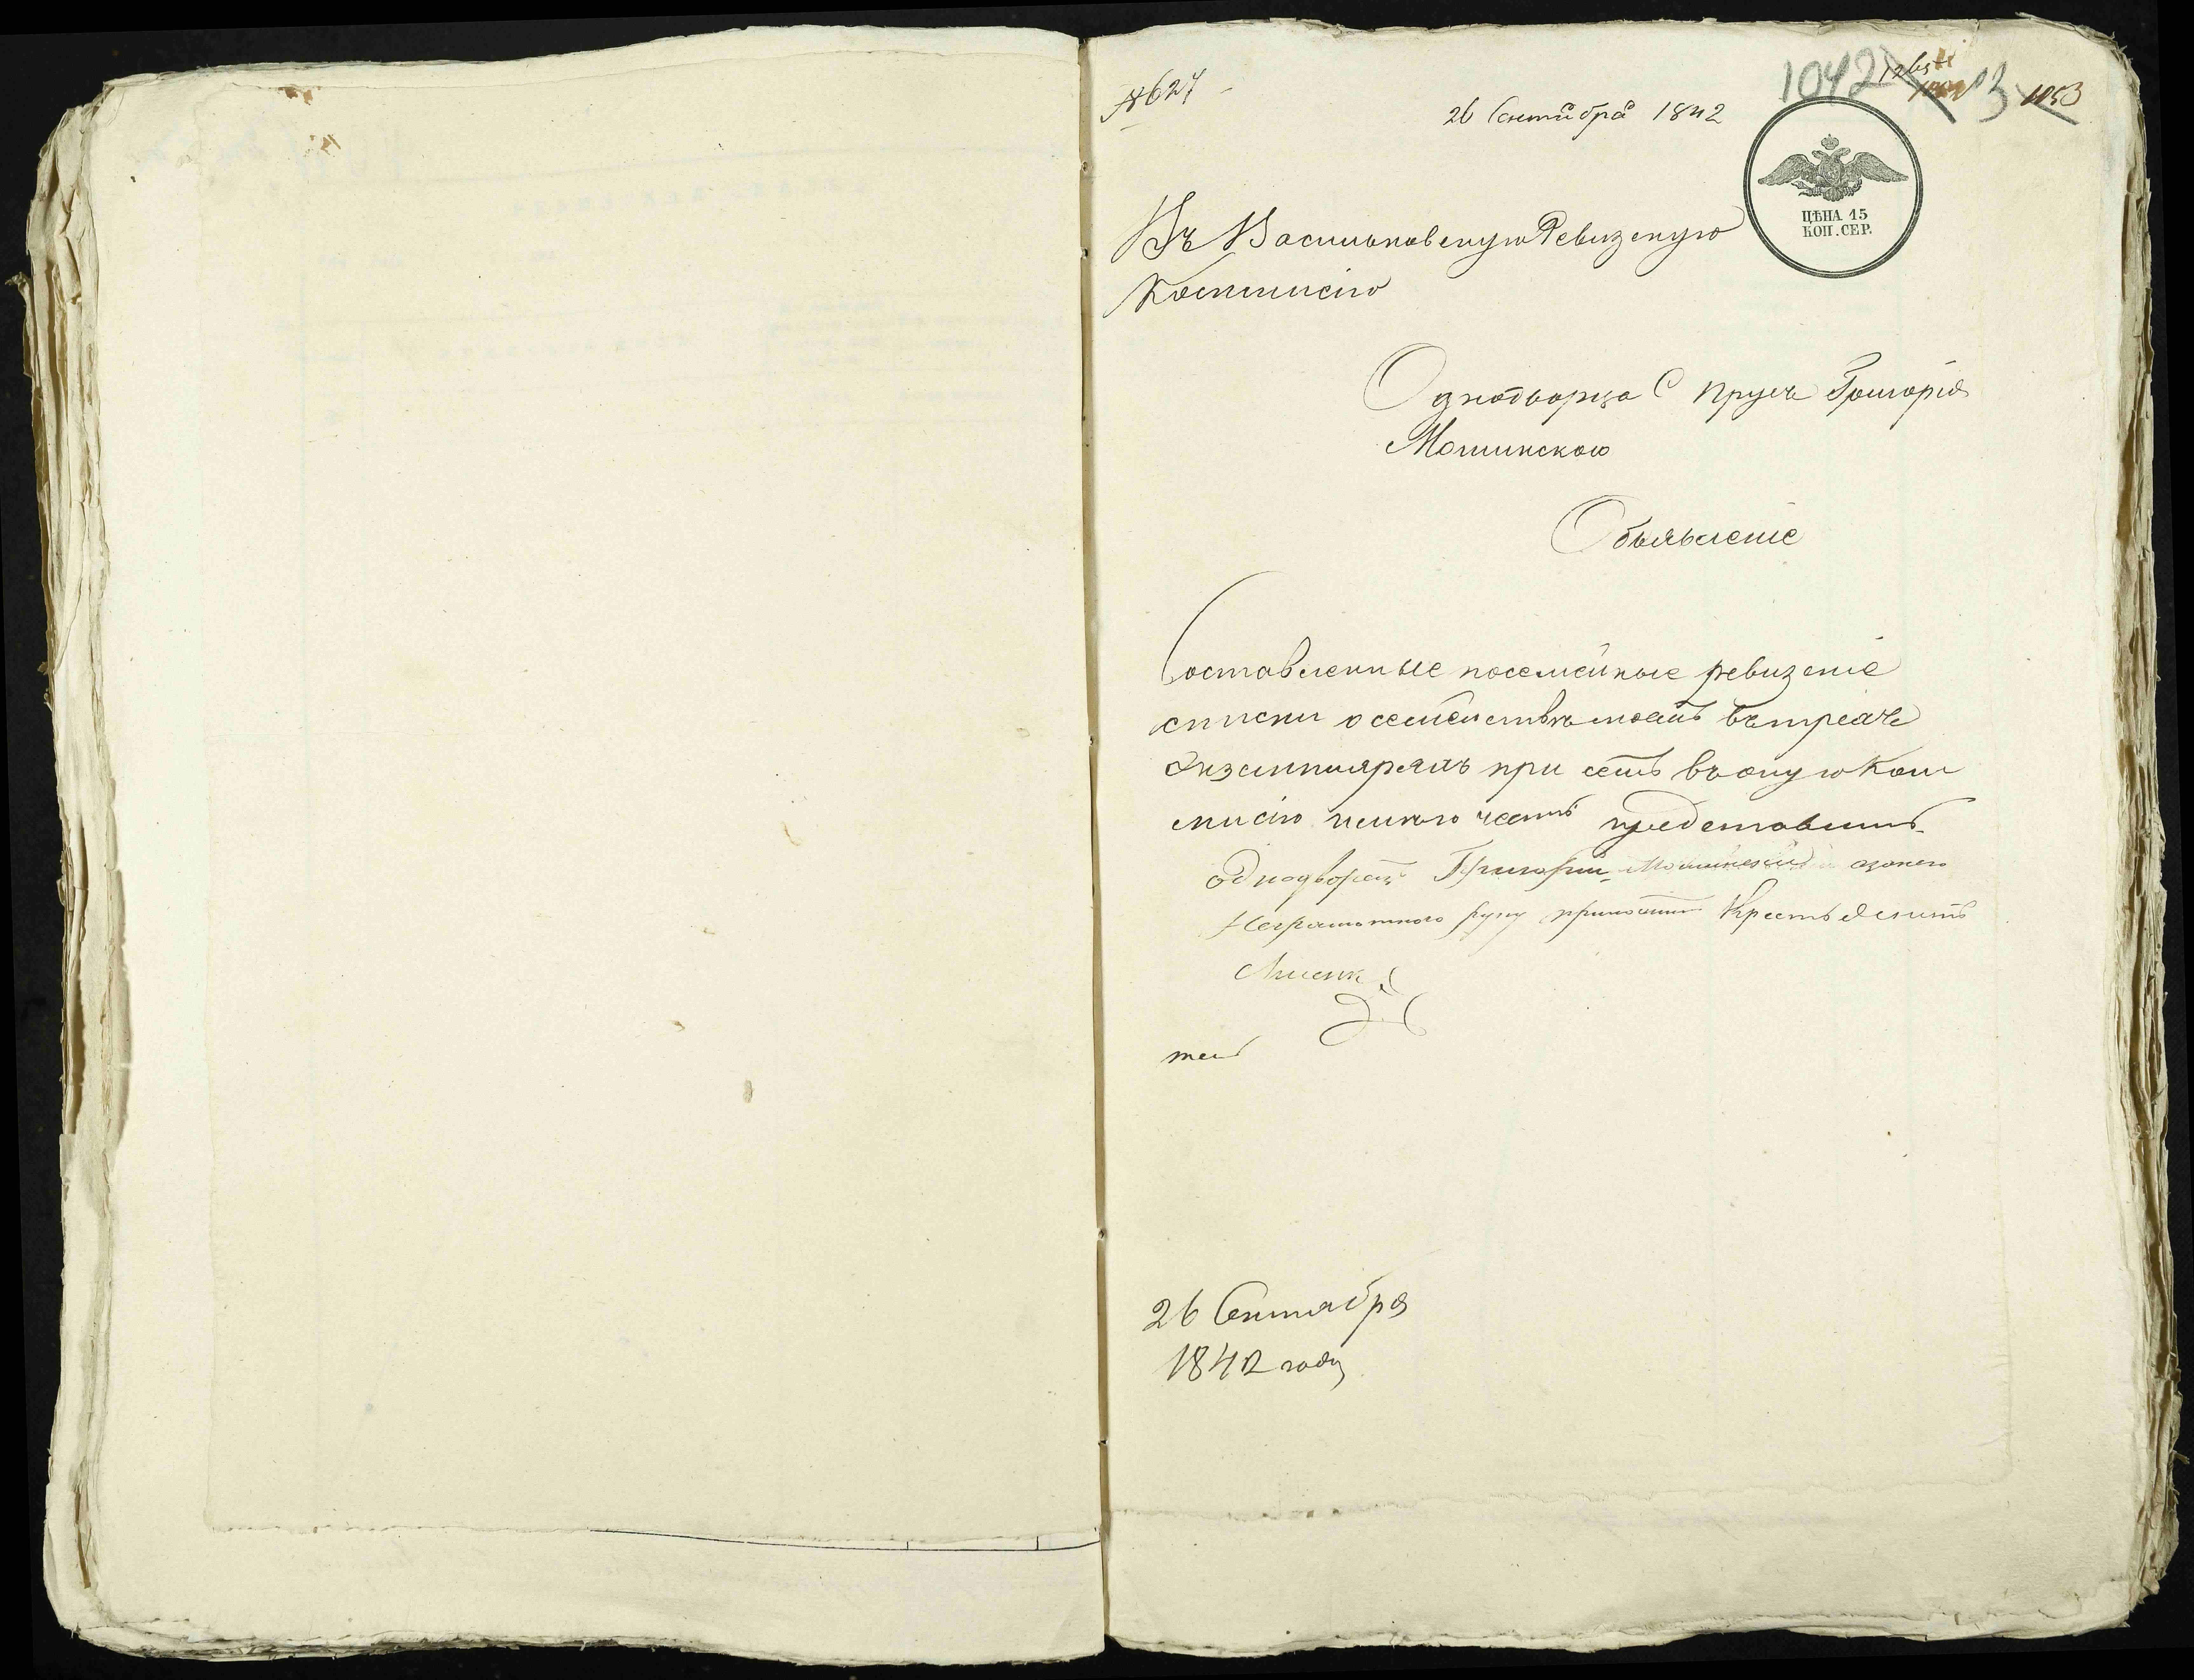 №627
26 Сентября 1842
1042
1053
ЦѢНА 15
КОП. СЕР.
Въ Васильковскую Ревизскую
Коммисію
Однодворца С Пругъ Григорія
Мошинского
Объявленіе
Составленные посемейные ревизскіе
списки о семействѣ моемъ въ трехъ
Экземплярахъ при семъ въ оную Ком
мисію имѣю честь представить
однодворецъ Григорій Мошинскій а за него
Неграмотного руку приложилъ
26 Сентября
1842 года